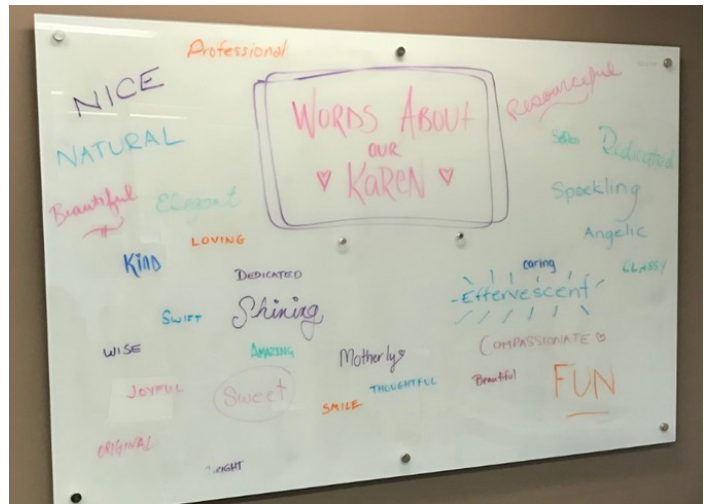 Professional
NICE
WORDS ABOUT
OUR
♡ KAREN ♡
Resourceful
NATURAL
Dedicated
Beautiful
Elegant
Spackling
LOVING
Angelic
Kind
DEDICATED
caring
CLASSY
Effervescent
SWIFT
Shining
WISE
AMAZING
Motherly
COMPASSIONATE
JOYFUL
Sweet
THOUGHTFUL
Beautiful
FUN
SMILE
ORIGINAL